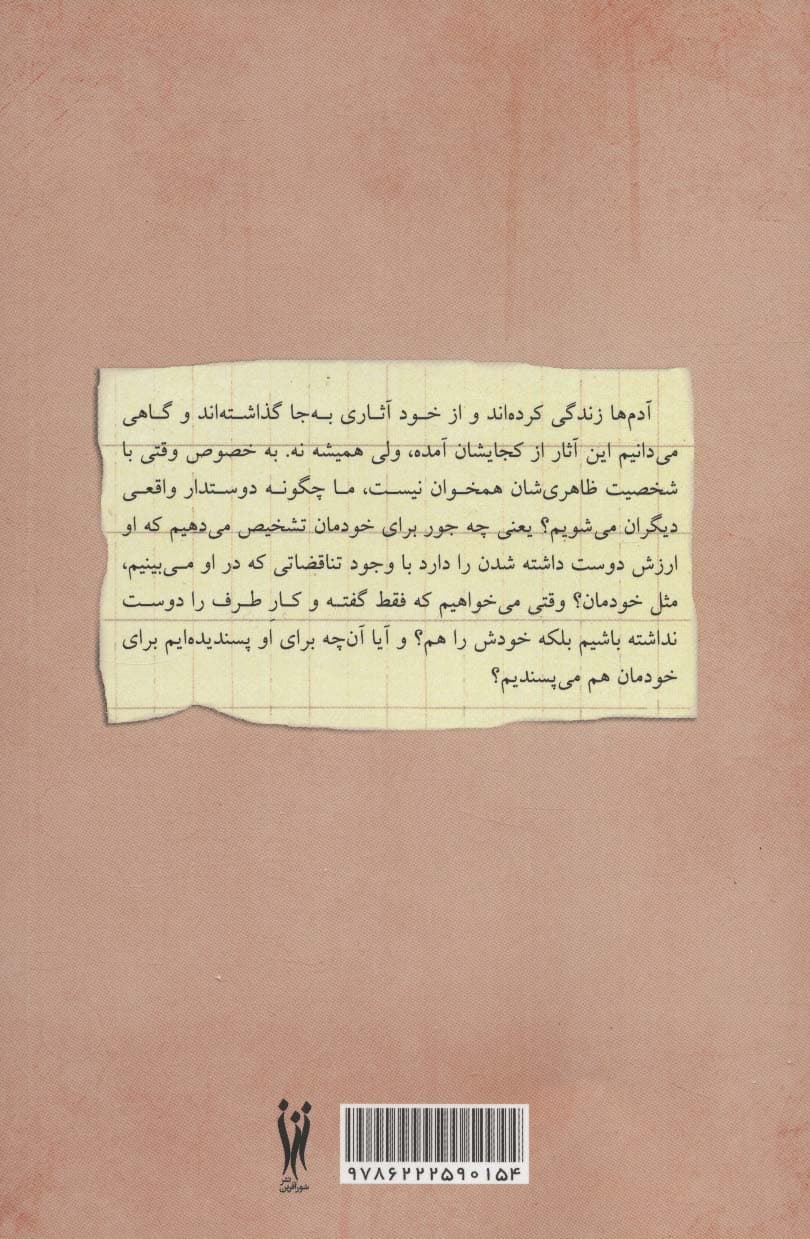 آدم‌ها زندگی کرده‌اند و از خود آثاری به‌جا گذاشته‌اند و گاهی
می‌دانیم این آثار از کجایشان آمده، ولی همیشه نه. به خصوص وقتی با
شخصیت ظاهری‌شان همخوان نیست، ما چگونه دوستدار واقعی
دیگران می‌شویم؟ یعنی چه جور برای خودمان تشخیص می‌دهیم که او
ارزش دوست داشته شدن را دارد با وجود تناقضاتی که در او می‌بینیم،
مثل خودمان؟ وقتی می‌خواهیم که فقط گفته و کارِ طرف را دوست
نداشته باشیم بلکه خودش را هم؟ و آیا آن‌چه برای او پسندیده‌ایم برای
خودمان هم می‌پسندیم؟
نشر
شورآفرین
۹۷۸۶۲۲۲۵۹۰۱۵۴